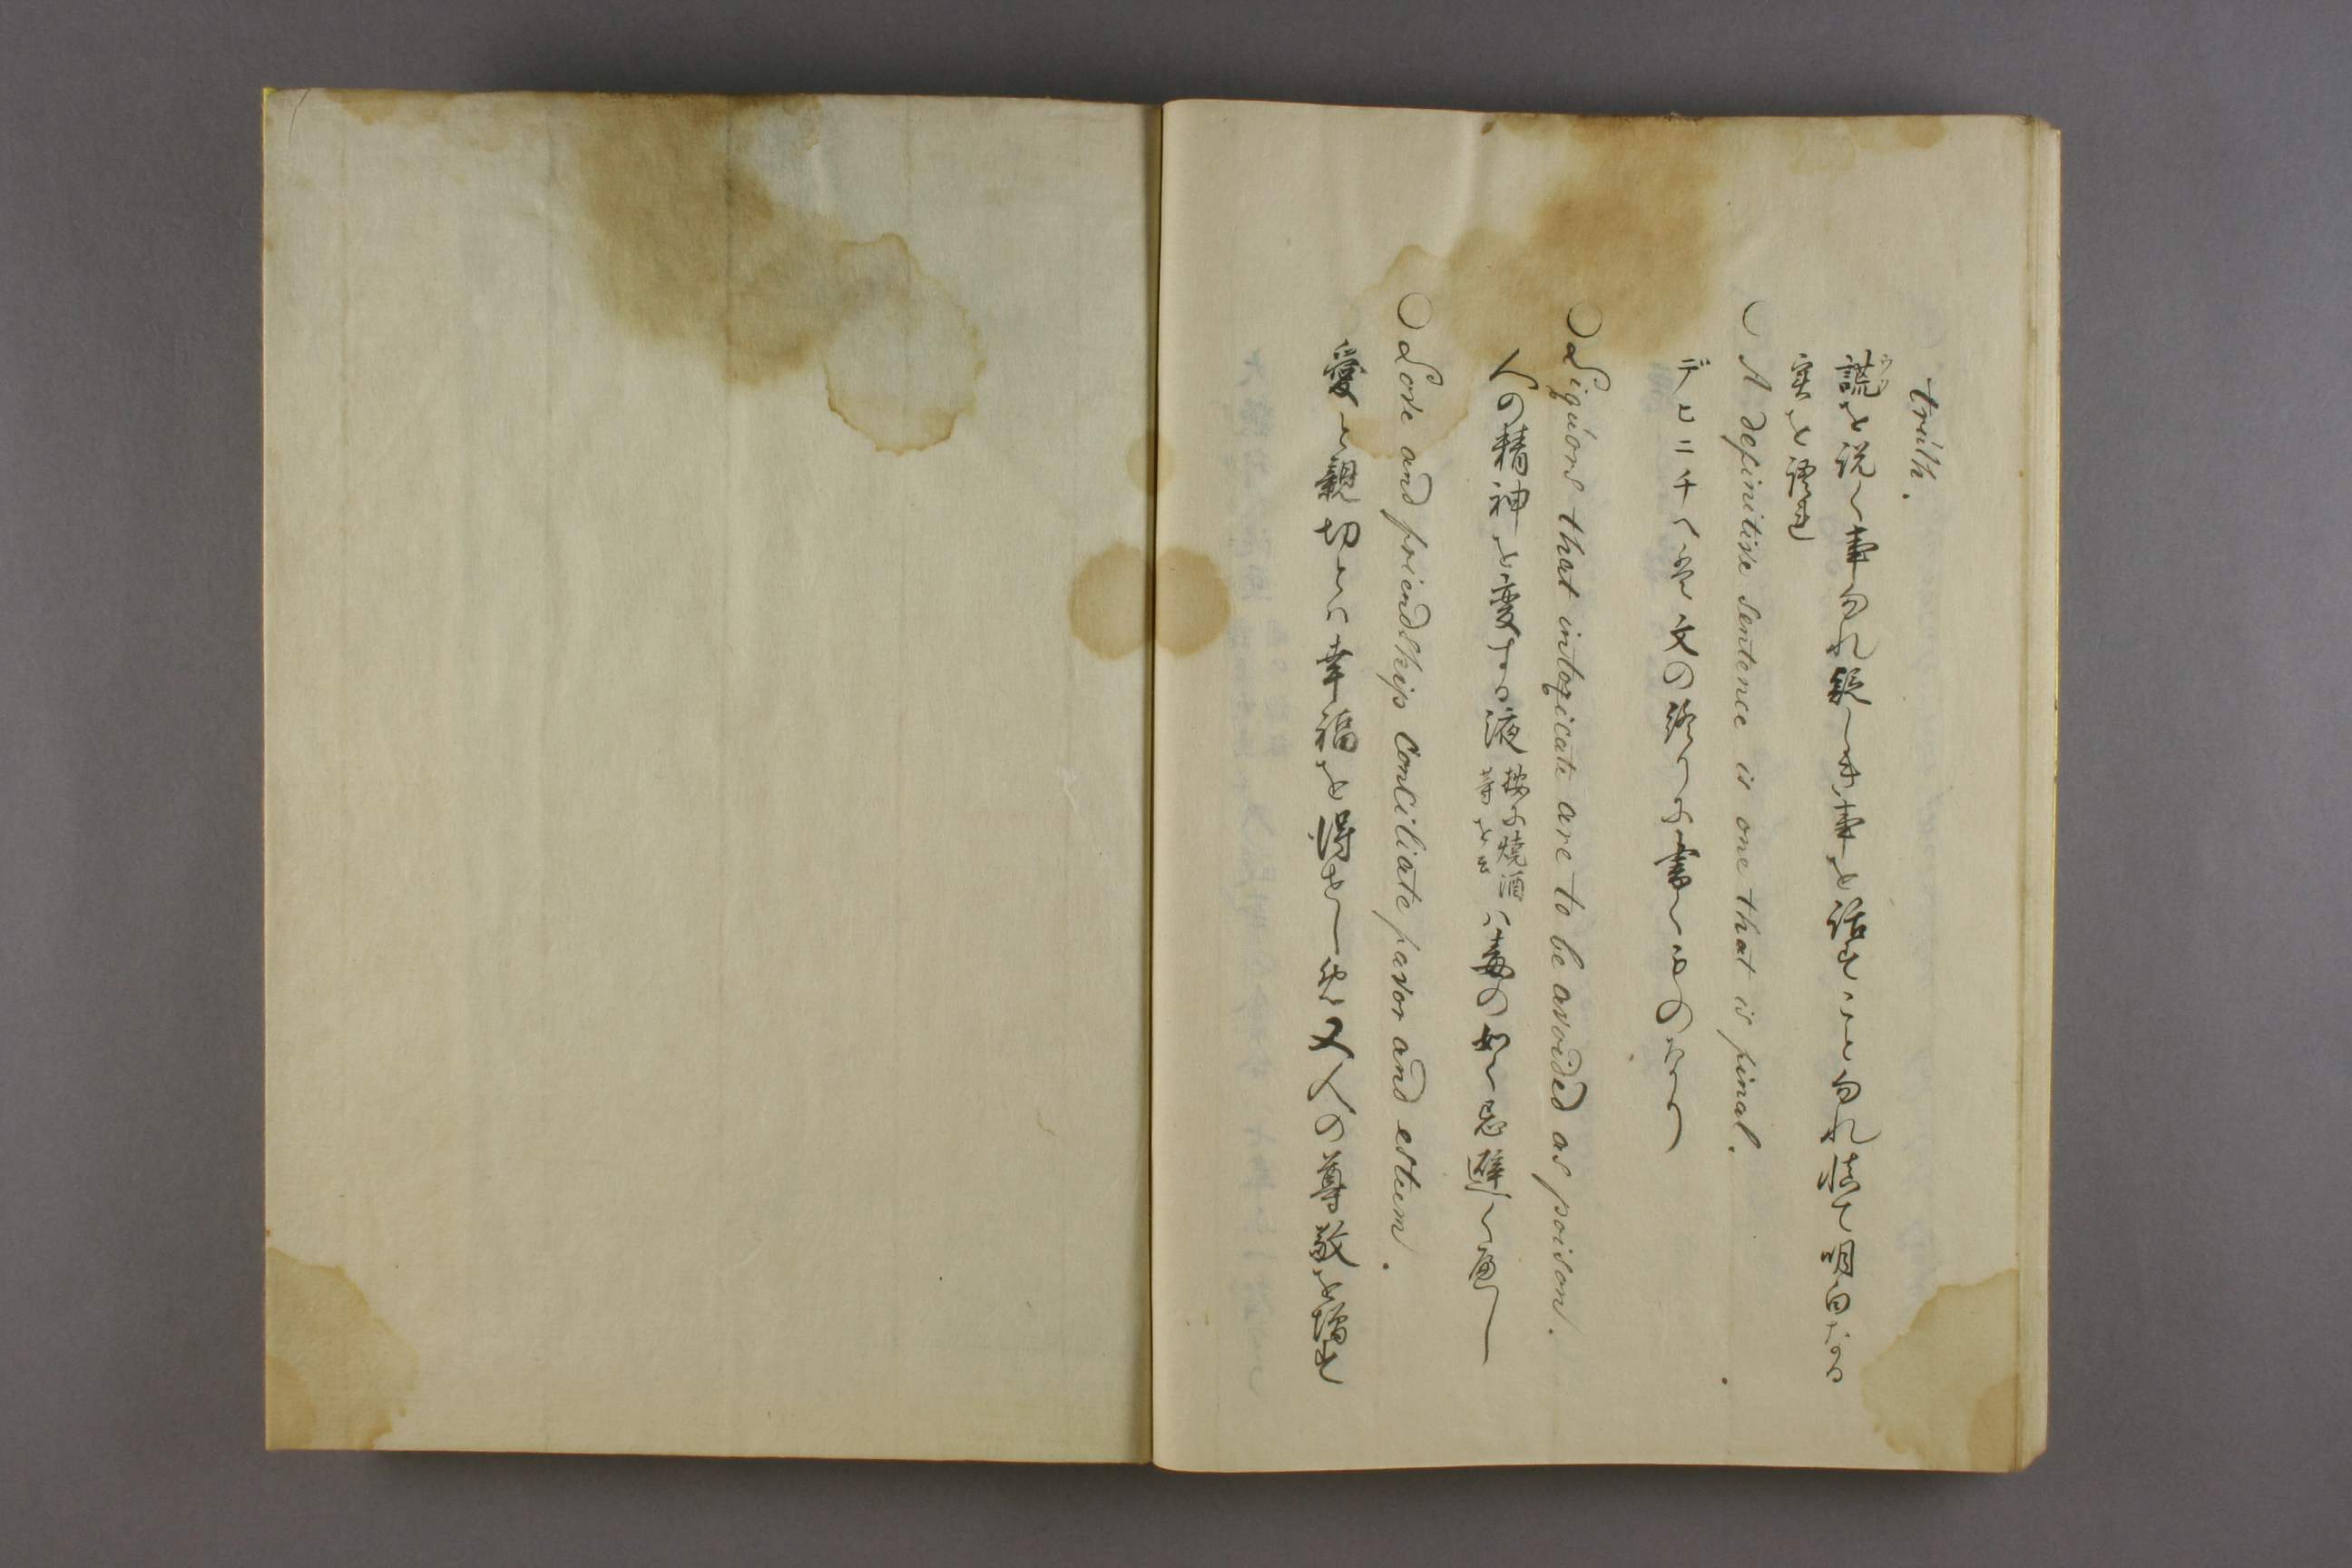 truth.
謊を説く事勿れ疑しき事を話すこと勿れ慎て明白なる
ウソ
実を語れ
○ A definitive sentence is one that is final.
デヒニチイ文の終りに書くものなり
○ Liquors that intoxicate are to be avoided as poison.
人の精神を変する液按に焼酒等を云ハ毒の如く忌避く可し
○ Love and friendship conciliate favor and esteem.
愛と親切とハ幸福を得せしめ又人の尊敬を増す